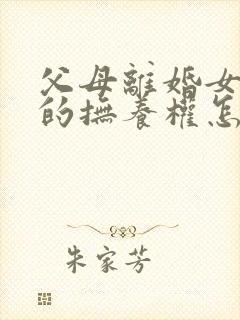 父母離婚女
的撫養權怎
朱家芳